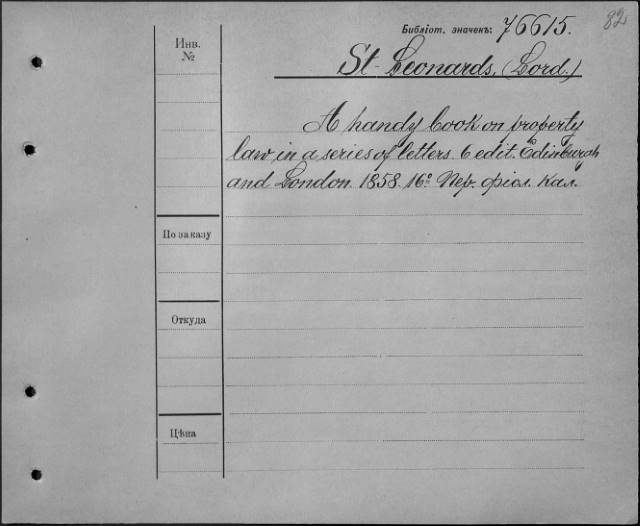 82
Библіот. значекъ: 76615.
Инв.
№
St. Leonards, (Lord.)
A handy book on property
law, in a series of letters. 6 edit. Edinburgh
and London. 1858. 16° Пер. фіол. кал.
По заказу
Откуда
Цѣна